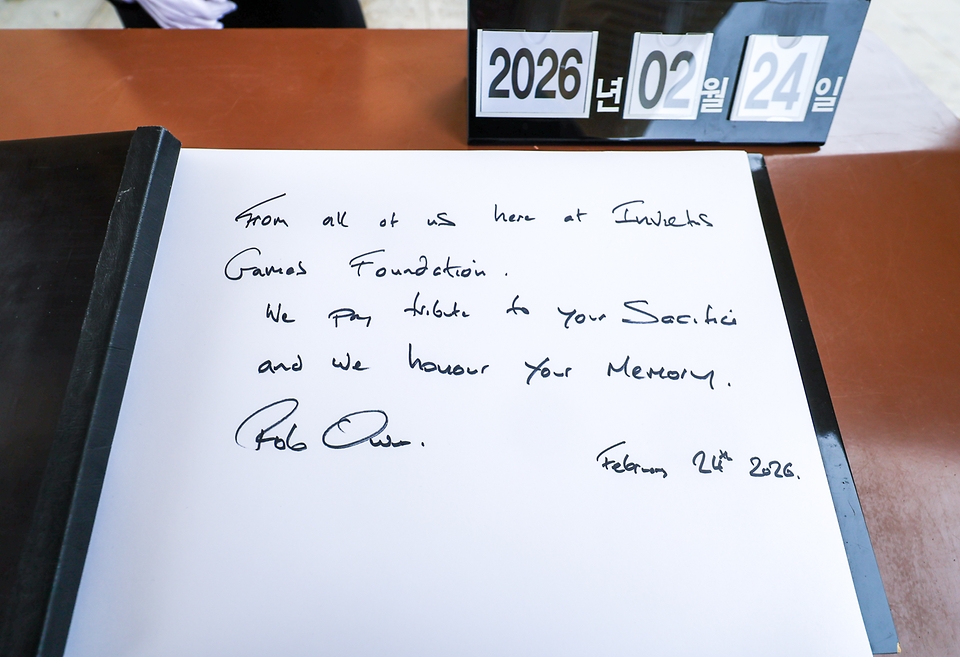 2026년 02월 24일
From all of us here at Invictus
Games Foundation.
We pay tribute to your Sacrifice
and we honour your Memory.
Rob Owen.
February 24th 2026.